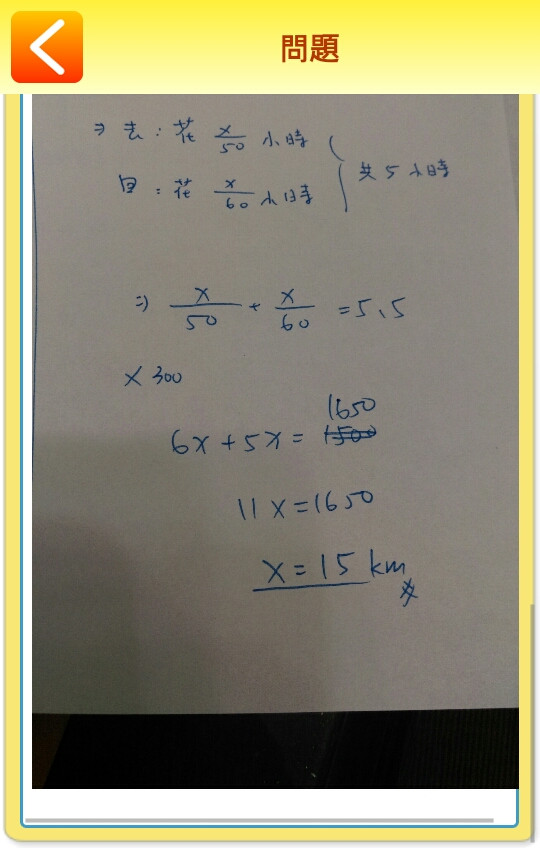 問題
⇒ 去：花 x/50 小時
回：花 x/60 小時
共 5 小時
⇒ x/50 + x/60 = 5.5
× 300
1650
6x + 5x = 1500
11x = 1650
x = 15 km